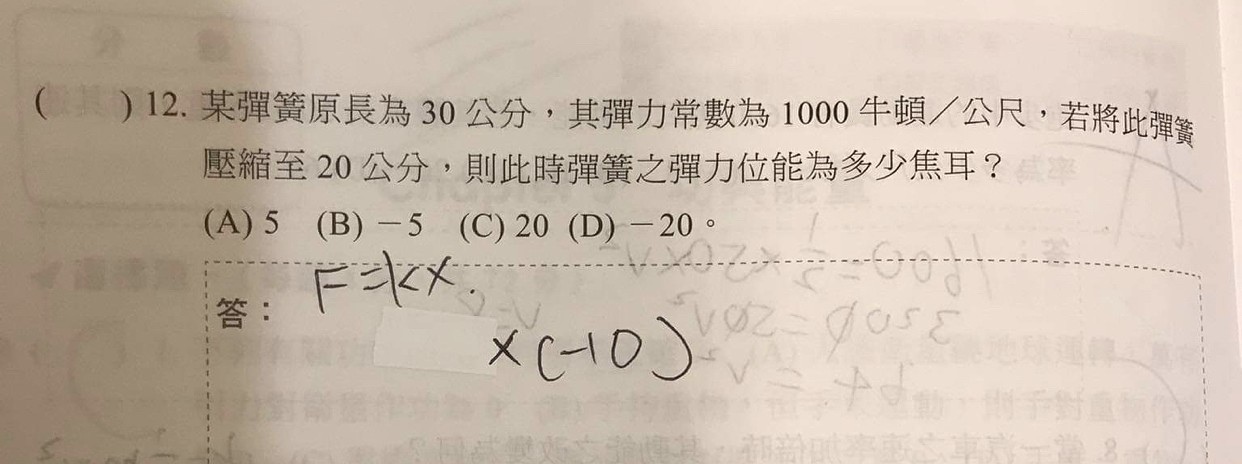 ( ) 12. 某彈簧原長為 30 公分，其彈力常數為 1000 牛頓／公尺，若將此彈簧
壓縮至 20 公分，則此時彈簧之彈力位能為多少焦耳？
(A) 5 (B) －5 (C) 20 (D) －20。
答： F=kx.
×(-10)